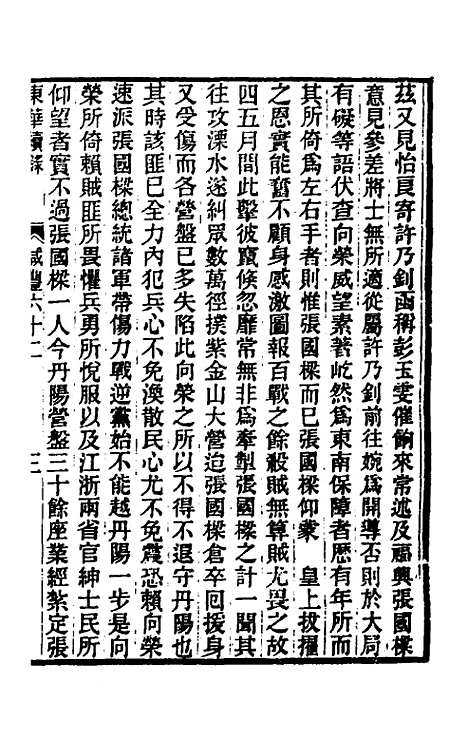 茲又見怡良寄許乃釗函稱彭玉雯催餉來常述及福興張國樑
意見參差將士無所適從屬許乃釗前往婉爲開導否則於大局
有礙等語伏查向榮威望素著屹然爲東南保障者歷有年所而
其所倚爲左右手者則惟張國樑而已張國樑仰蒙　皇上拔擢
之恩實能奮不顧身感激圖報百戰之餘殺賊無算賊尤畏之故
四五月間此擊彼竄倏忽靡常無非爲牽掣張國樑之計一聞其
往攻溧水遂糾眾數萬徑撲紫金山大營迨張國樑倉卒回援身
又受傷而各營盤已多失陷此向榮之所以不得不退守丹陽也
其時該匪已全力內犯兵心不免渙散民心尤不免震恐賴向榮
速派張國樑總統諸軍帶傷力戰逆黨始不能越丹陽一步是向
榮所倚賴賊匪所畏懼兵勇所悅服以及江浙兩省官紳士民所
仰望者實不過張國樑一人今丹陽營盤三十餘座業經紮定張
東華續錄　咸豐六十二　三